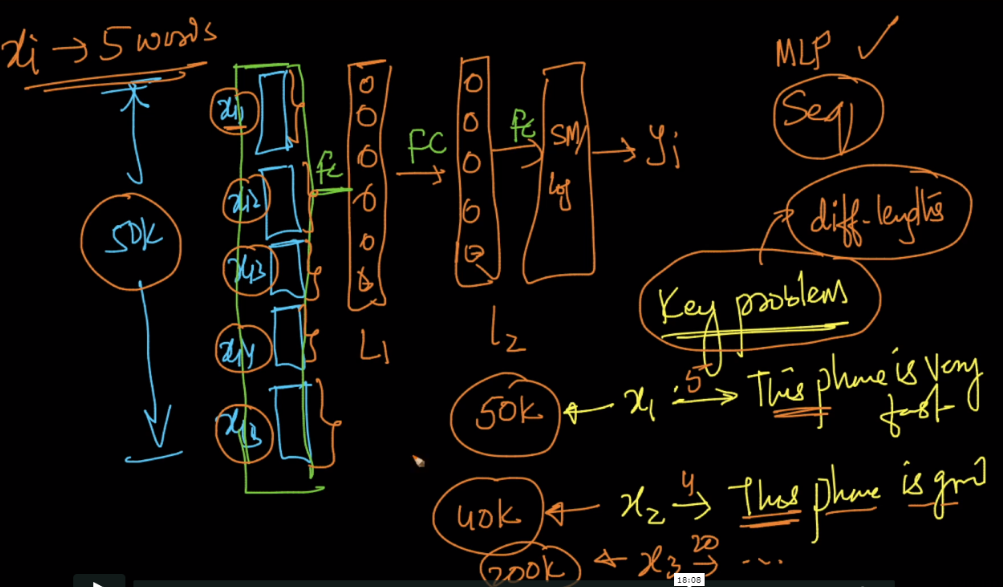 xi → 5 words
50K
xi1
xi2
xi3
xi4
fc
L1
FC
L2
fc
SM/
log
→ yi
MLP ✓
Seq
diff-lengths
Key problem
50K ← x1 5 → This phone is very
fast
40K ← x2 4 → This phone is good
200K ← x3 20 → ...
18:08